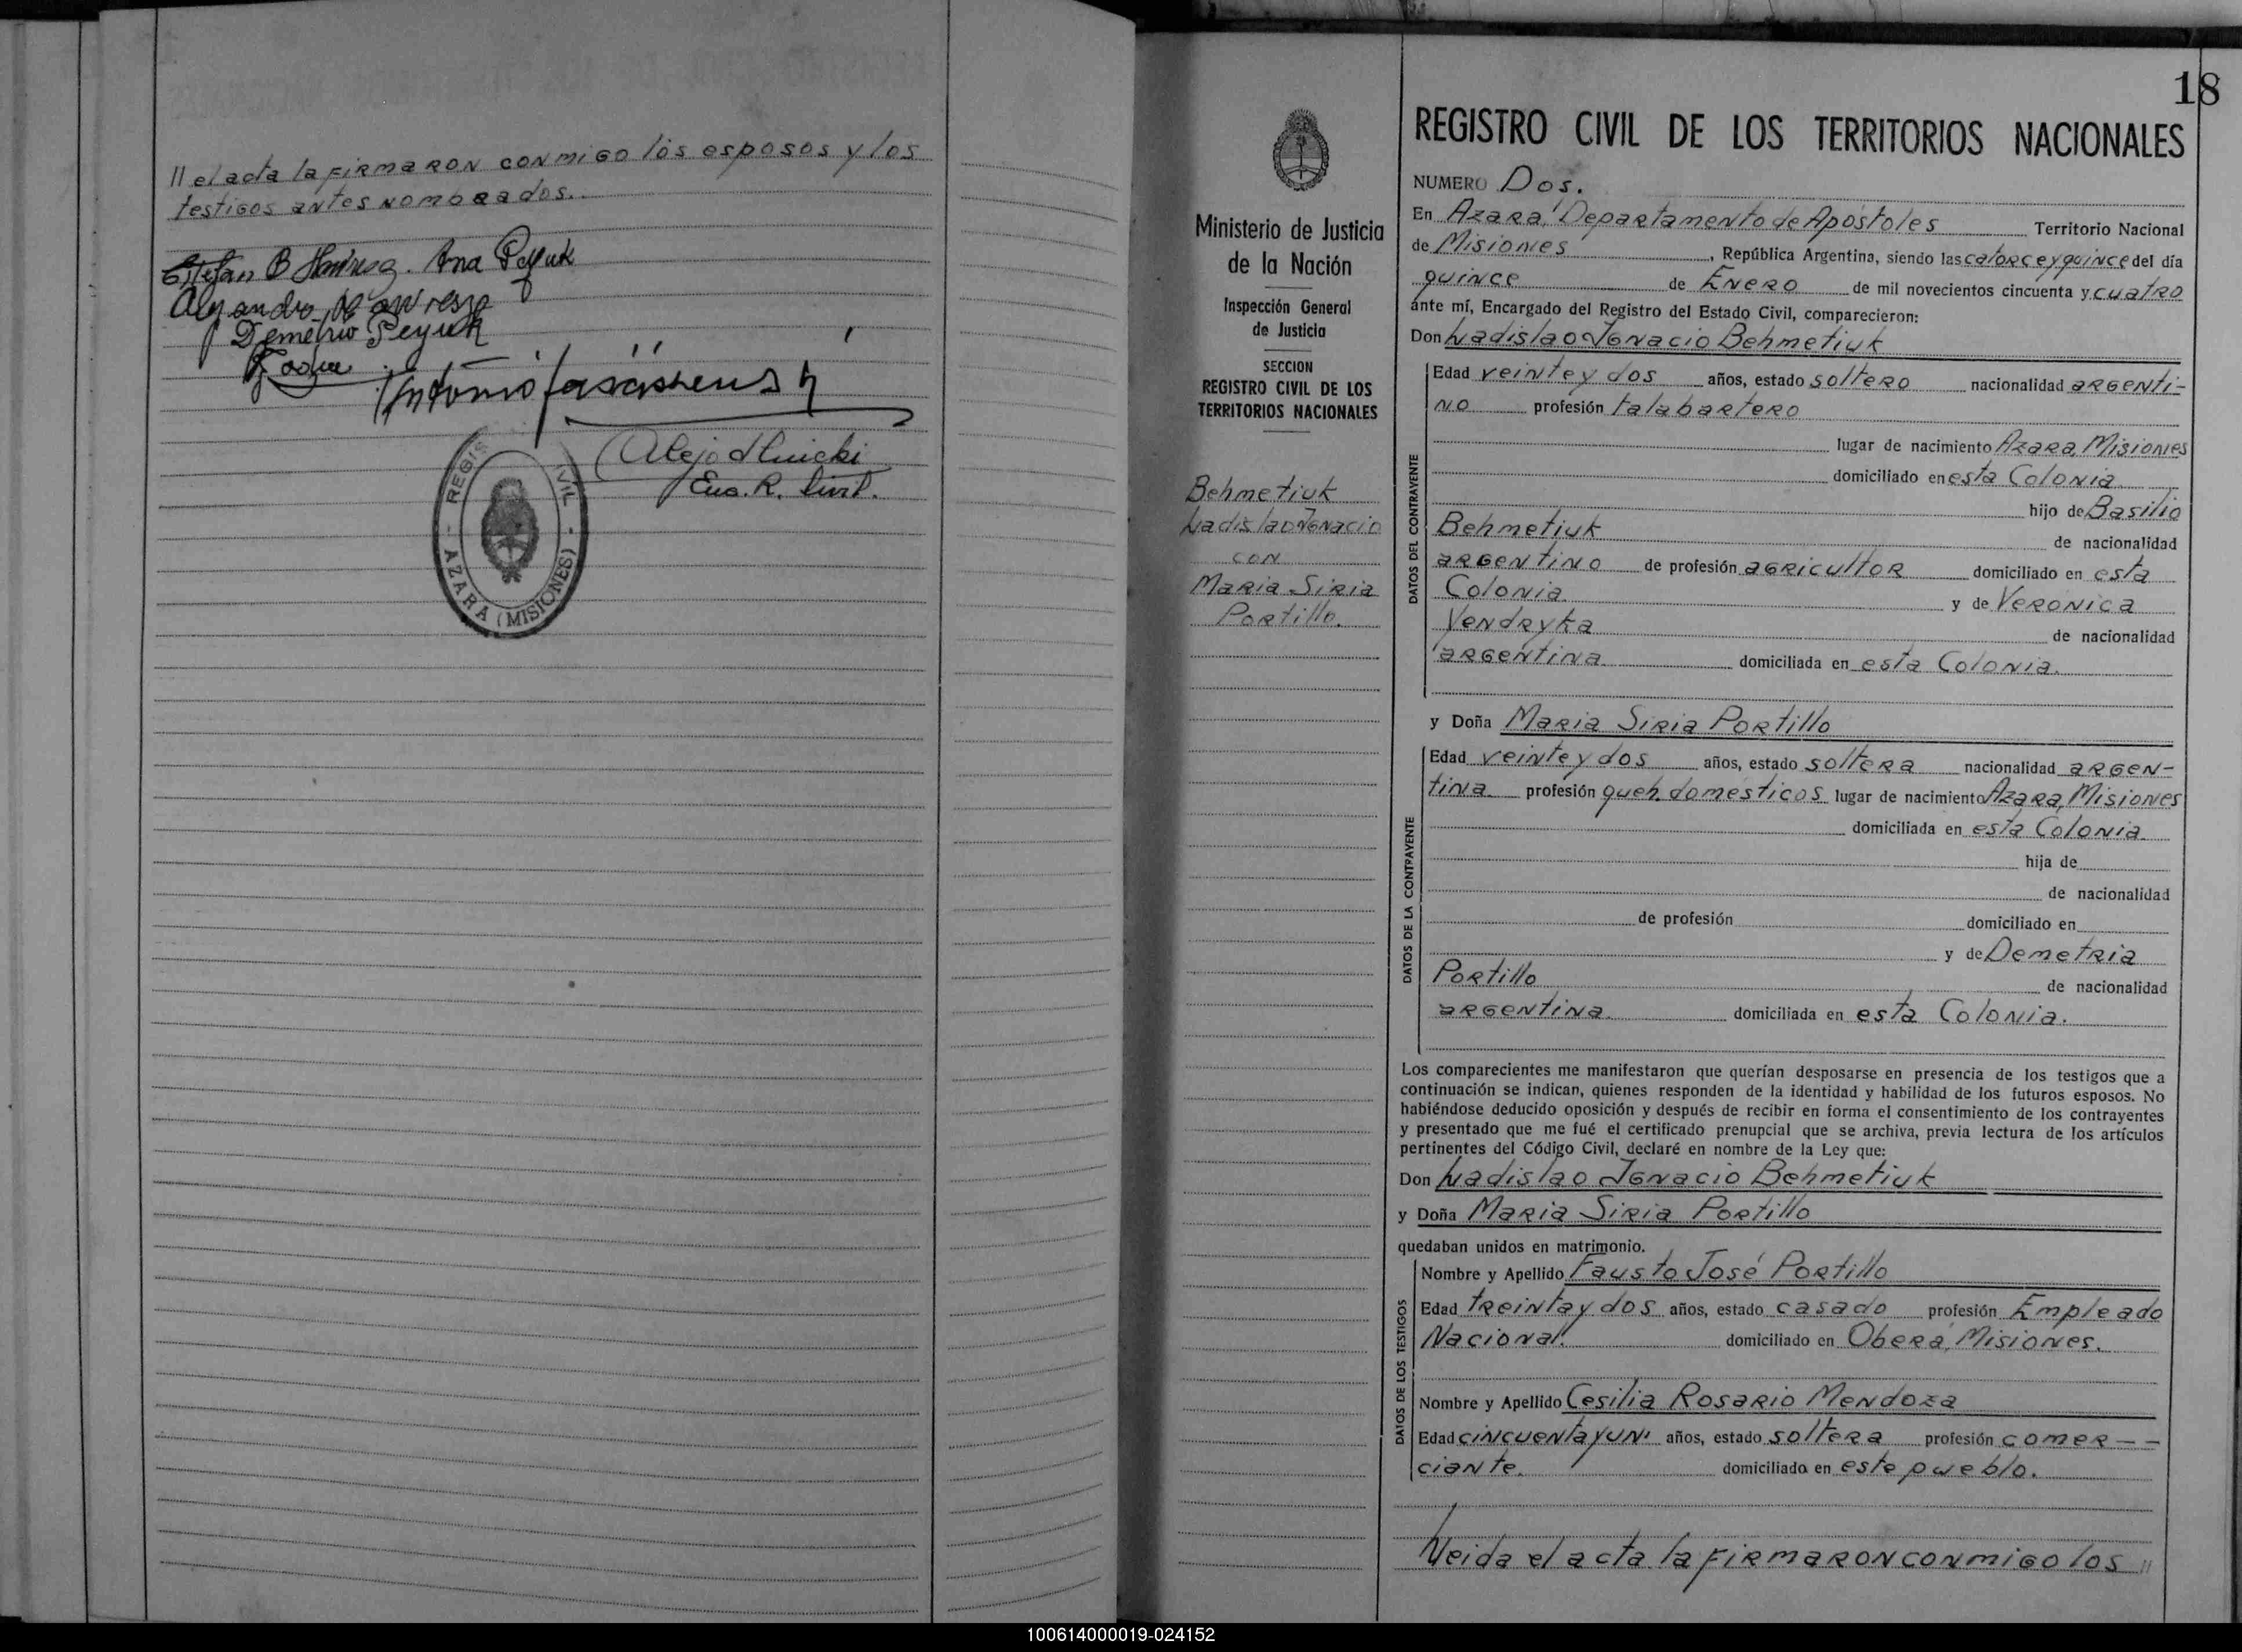 // el acta la firmaron conmigo los esposos y los
testigos antes nombrados.
Ana Peyuk
Demetrio Peyuk
Antonio
Alejo
Enc. R. Civil.
REGIS IVIL - AZARA (MISIONES) -
18
Ministerio de Justicia
de la Nación
Inspección General
de Justicia
SECCION
REGISTRO CIVIL DE LOS
TERRITORIOS NACIONALES
Behmetiuk
Ladislao Ignacio
con
Maria Siria
Portillo.
REGISTRO CIVIL DE LOS TERRITORIOS NACIONALES
NUMERO Dos.
En Azara, Departamento de Apóstoles Territorio Nacional
de Misiones, República Argentina, siendo las catorce y quince del día
quince de Enero de mil novecientos cincuenta y cuatro
ante mí, Encargado del Registro del Estado Civil, comparecieron:
Don Ladislao Ignacio Behmetiuk
DATOS DEL CONTRAYENTE
Edad veinte y dos años, estado soltero nacionalidad argenti-
no profesión talabartero
lugar de nacimiento Azara, Misiones
domiciliado en esta Colonia
hijo de Basilio
Behmetiuk de nacionalidad
argentino de profesión agricultor domiciliado en esta
Colonia y de Veronica
Vendryka de nacionalidad
argentina domiciliada en esta Colonia.
y Doña Maria Siria Portillo
DATOS DE LA CONTRAYENTE
Edad veinte y dos años, estado soltera nacionalidad argen-
tina profesión queh. domésticos lugar de nacimiento Azara, Misiones
domiciliada en esta Colonia
hija de
de nacionalidad
de profesión domiciliado en
y de Demetria
Portillo de nacionalidad
argentina domiciliada en esta Colonia.
Los comparecientes me manifestaron que querían desposarse en presencia de los testigos que a
continuación se indican, quienes responden de la identidad y habilidad de los futuros esposos. No
habiéndose deducido oposición y después de recibir en forma el consentimiento de los contrayentes
y presentado que me fué el certificado prenupcial que se archiva, previa lectura de los artículos
pertinentes del Código Civil, declaré en nombre de la Ley que:
Don Ladislao Ignacio Behmetiuk
y Doña Maria Siria Portillo
quedaban unidos en matrimonio.
DATOS DE LOS TESTIGOS
Nombre y Apellido Fausto José Portillo
Edad treinta y dos años, estado casado profesión Empleado
Nacional. domiciliado en Oberá, Misiones.
Nombre y Apellido Cesilia Rosario Mendoza
Edad cincuenta y un años, estado soltera profesión comer--
ciante. domiciliado en este pueblo.
Leida el acta la firmaron conmigo los //
100614000019-024152